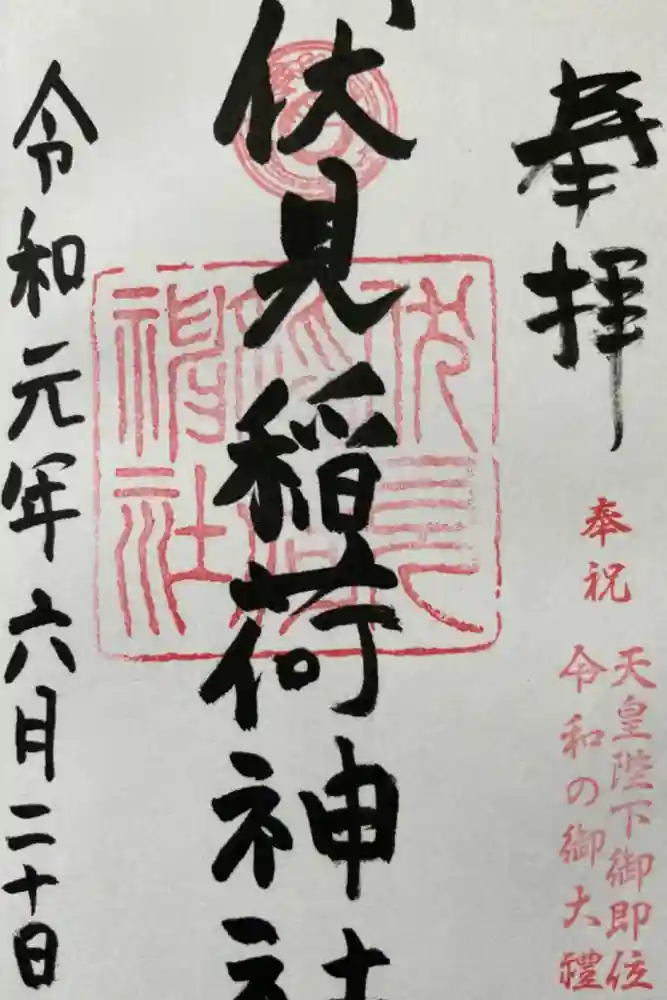 奉拝
奉祝
天皇陛下御即位
令和の御大禮
伏見稲荷神社
令和元年六月二十日
伏見
稲荷
神社